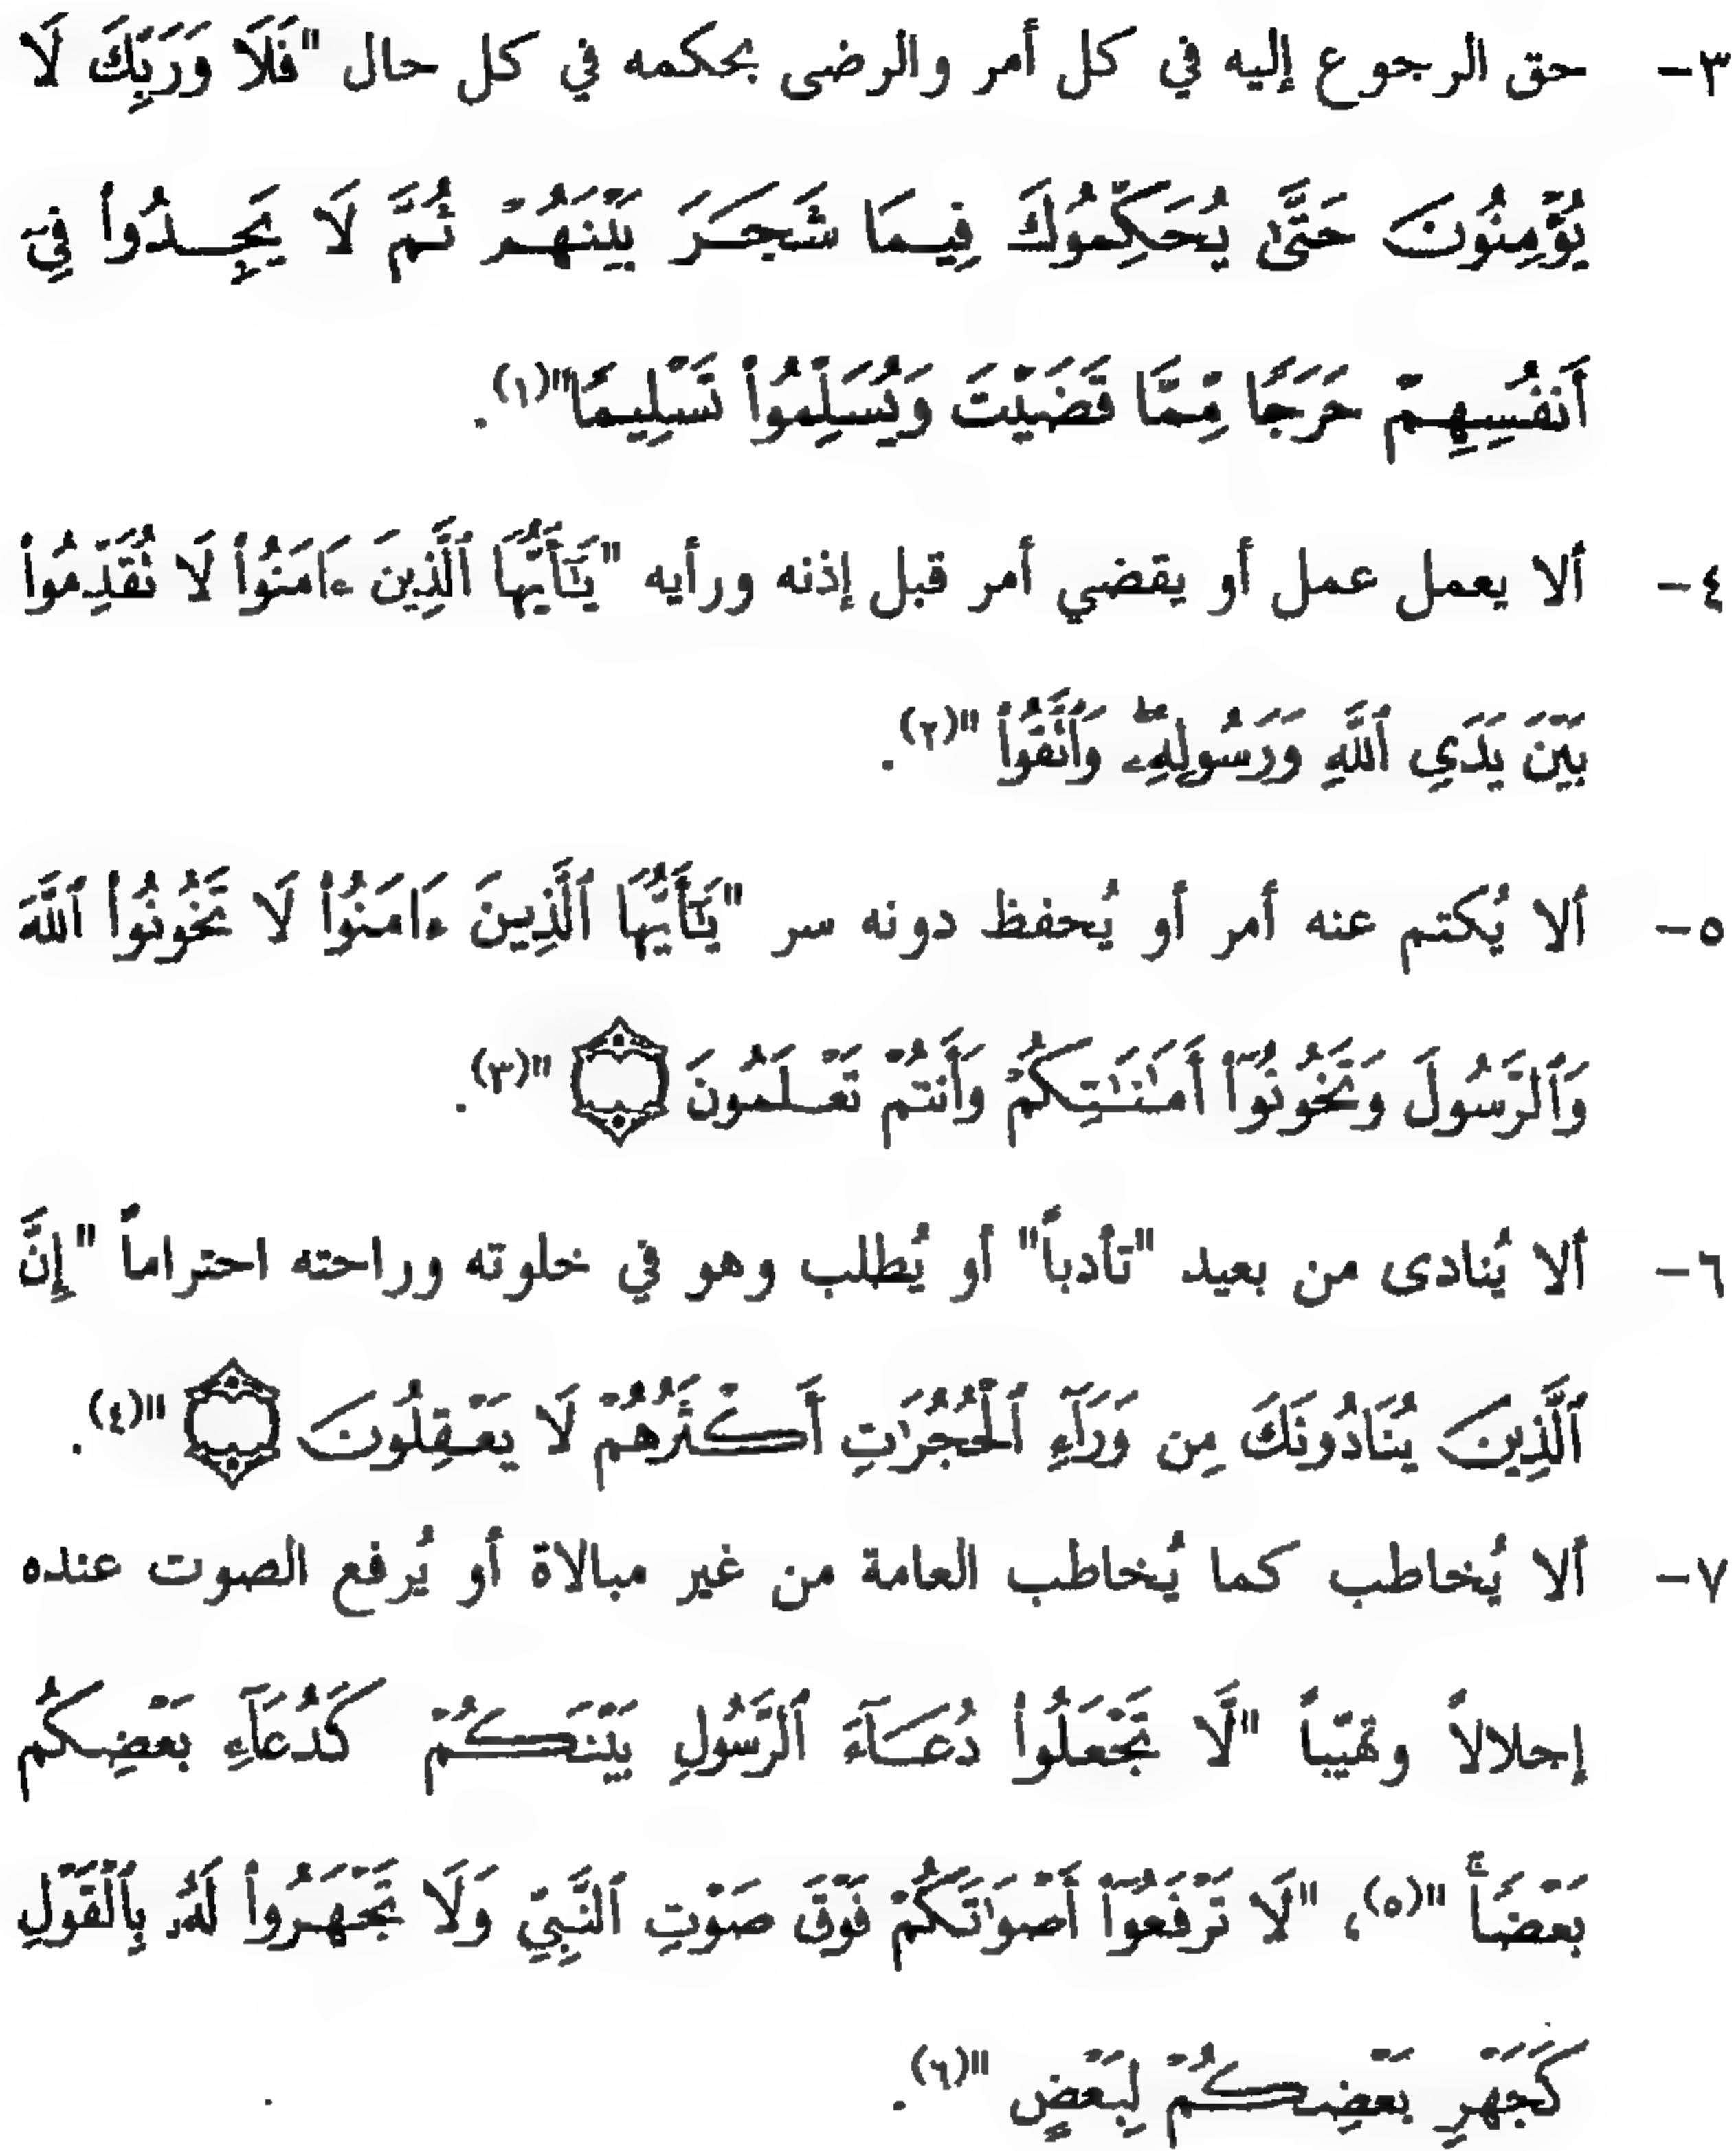 ٣- حق الرجوع إليه في كل أمر والرضى بحكمه في كل حال "فَلَا وَرَبِّكَ لَا
يُؤْمِنُونَ حَتَّىٰ يُحَكِّمُوكَ فِيمَا شَجَرَ بَيْنَهُمْ ثُمَّ لَا يَجِدُوا۟ فِىٓ
أَنفُسِهِمْ حَرَجًا مِّمَّا قَضَيْتَ وَيُسَلِّمُوا۟ تَسْلِيمًا"(١).
٤- ألا يعمل عمل أو يقضي أمر قبل إذنه ورأيه "يَـٰٓأَيُّهَا ٱلَّذِينَ ءَامَنُوا۟ لَا تُقَدِّمُوا۟
بَيْنَ يَدَىِ ٱللَّهِ وَرَسُولِهِۦ ۖ وَٱتَّقُوا۟ "(٢).
٥- ألا يُكتم عنه أمر أو يُحفظ دونه سر "يَـٰٓأَيُّهَا ٱلَّذِينَ ءَامَنُوا۟ لَا تَخُونُوا۟ ٱللَّهَ
وَٱلرَّسُولَ وَتَخُونُوٓا۟ أَمَـٰنَـٰتِكُمْ وَأَنتُمْ تَعْلَمُونَ "(٣).
٦- ألا يُنادى من بعيد "تأدباً" أو يُطلب وهو في خلوته وراحته احتراماً "إِنَّ
ٱلَّذِينَ يُنَادُونَكَ مِن وَرَآءِ ٱلْحُجُرَٰتِ أَكْثَرُهُمْ لَا يَعْقِلُونَ "(٤).
٧- ألا يُخاطب كما يُخاطب العامة من غير مبالاة أو يُرفع الصوت عنده
إجلالاً وتهيّباً "لَّا تَجْعَلُوا۟ دُعَآءَ ٱلرَّسُولِ بَيْنَكُمْ كَدُعَآءِ بَعْضِكُم
بَعْضًا ۚ "(٥)، "لَا تَرْفَعُوٓا۟ أَصْوَٰتَكُمْ فَوْقَ صَوْتِ ٱلنَّبِىِّ وَلَا تَجْهَرُوا۟ لَهُۥ بِٱلْقَوْلِ
كَجَهْرِ بَعْضِكُمْ لِبَعْضٍ "(٦).